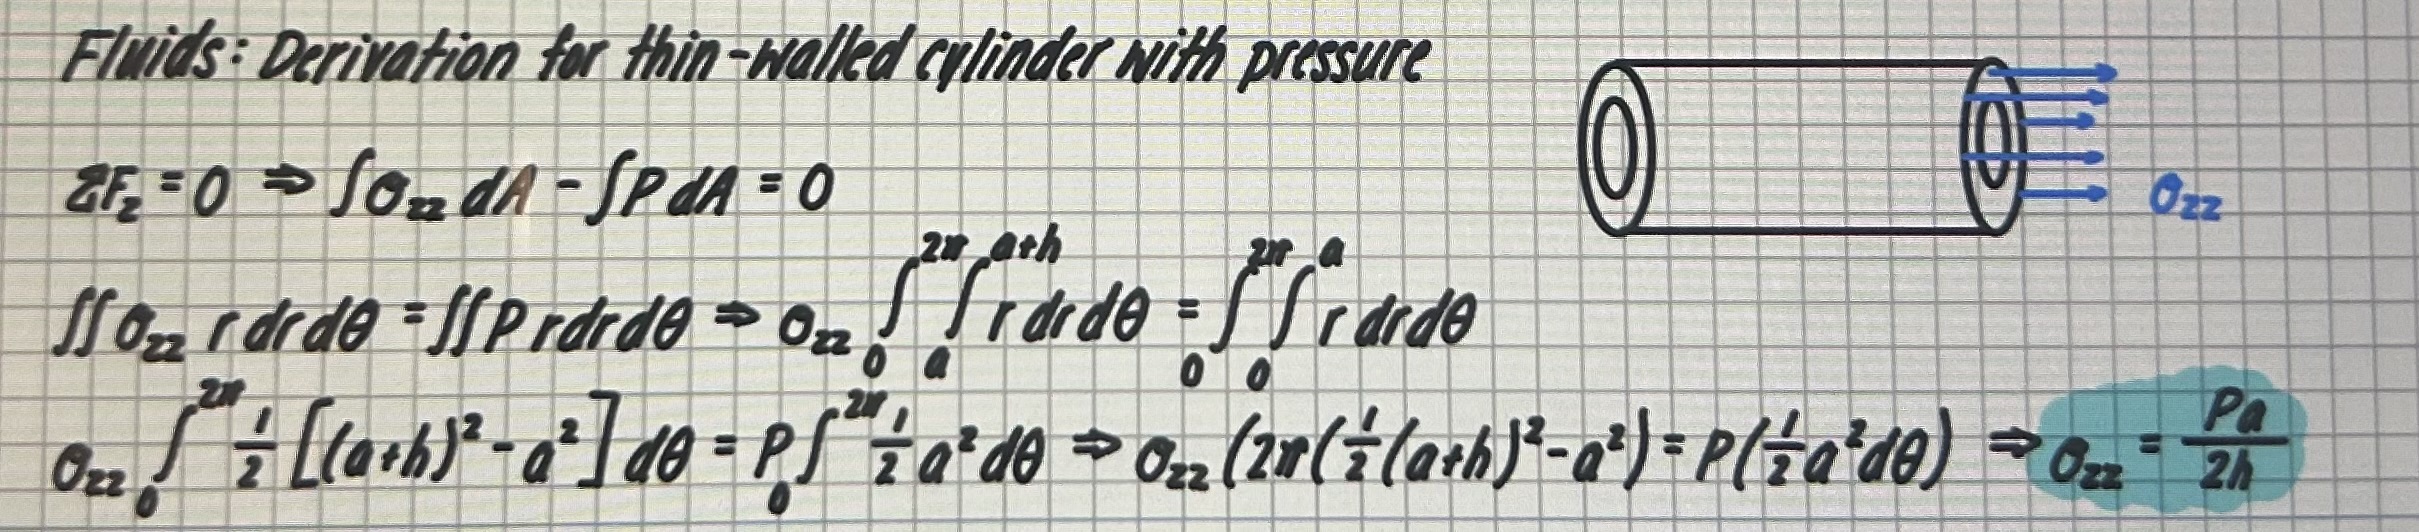 Fluids: Derivation for thin-walled cylinder with pressure
ΣF_z = 0 ⇒ ∫σ_zz dA - ∫P dA = 0
σ_zz
∬σ_zz r dr dθ = ∬P r dr dθ ⇒ σ_zz ∫_0^{2π} ∫_a^{a+h} r dr dθ = ∫_0^{2π} ∫_0^a r dr dθ
σ_zz ∫_0^{2π} 1/2 [(a+h)² - a²] dθ = P ∫_0^{2π} 1/2 a² dθ ⇒ σ_zz (2π(1/2(a+h)² - a²) = P(1/2 a² dθ) ⇒ σ_zz = Pa/2h